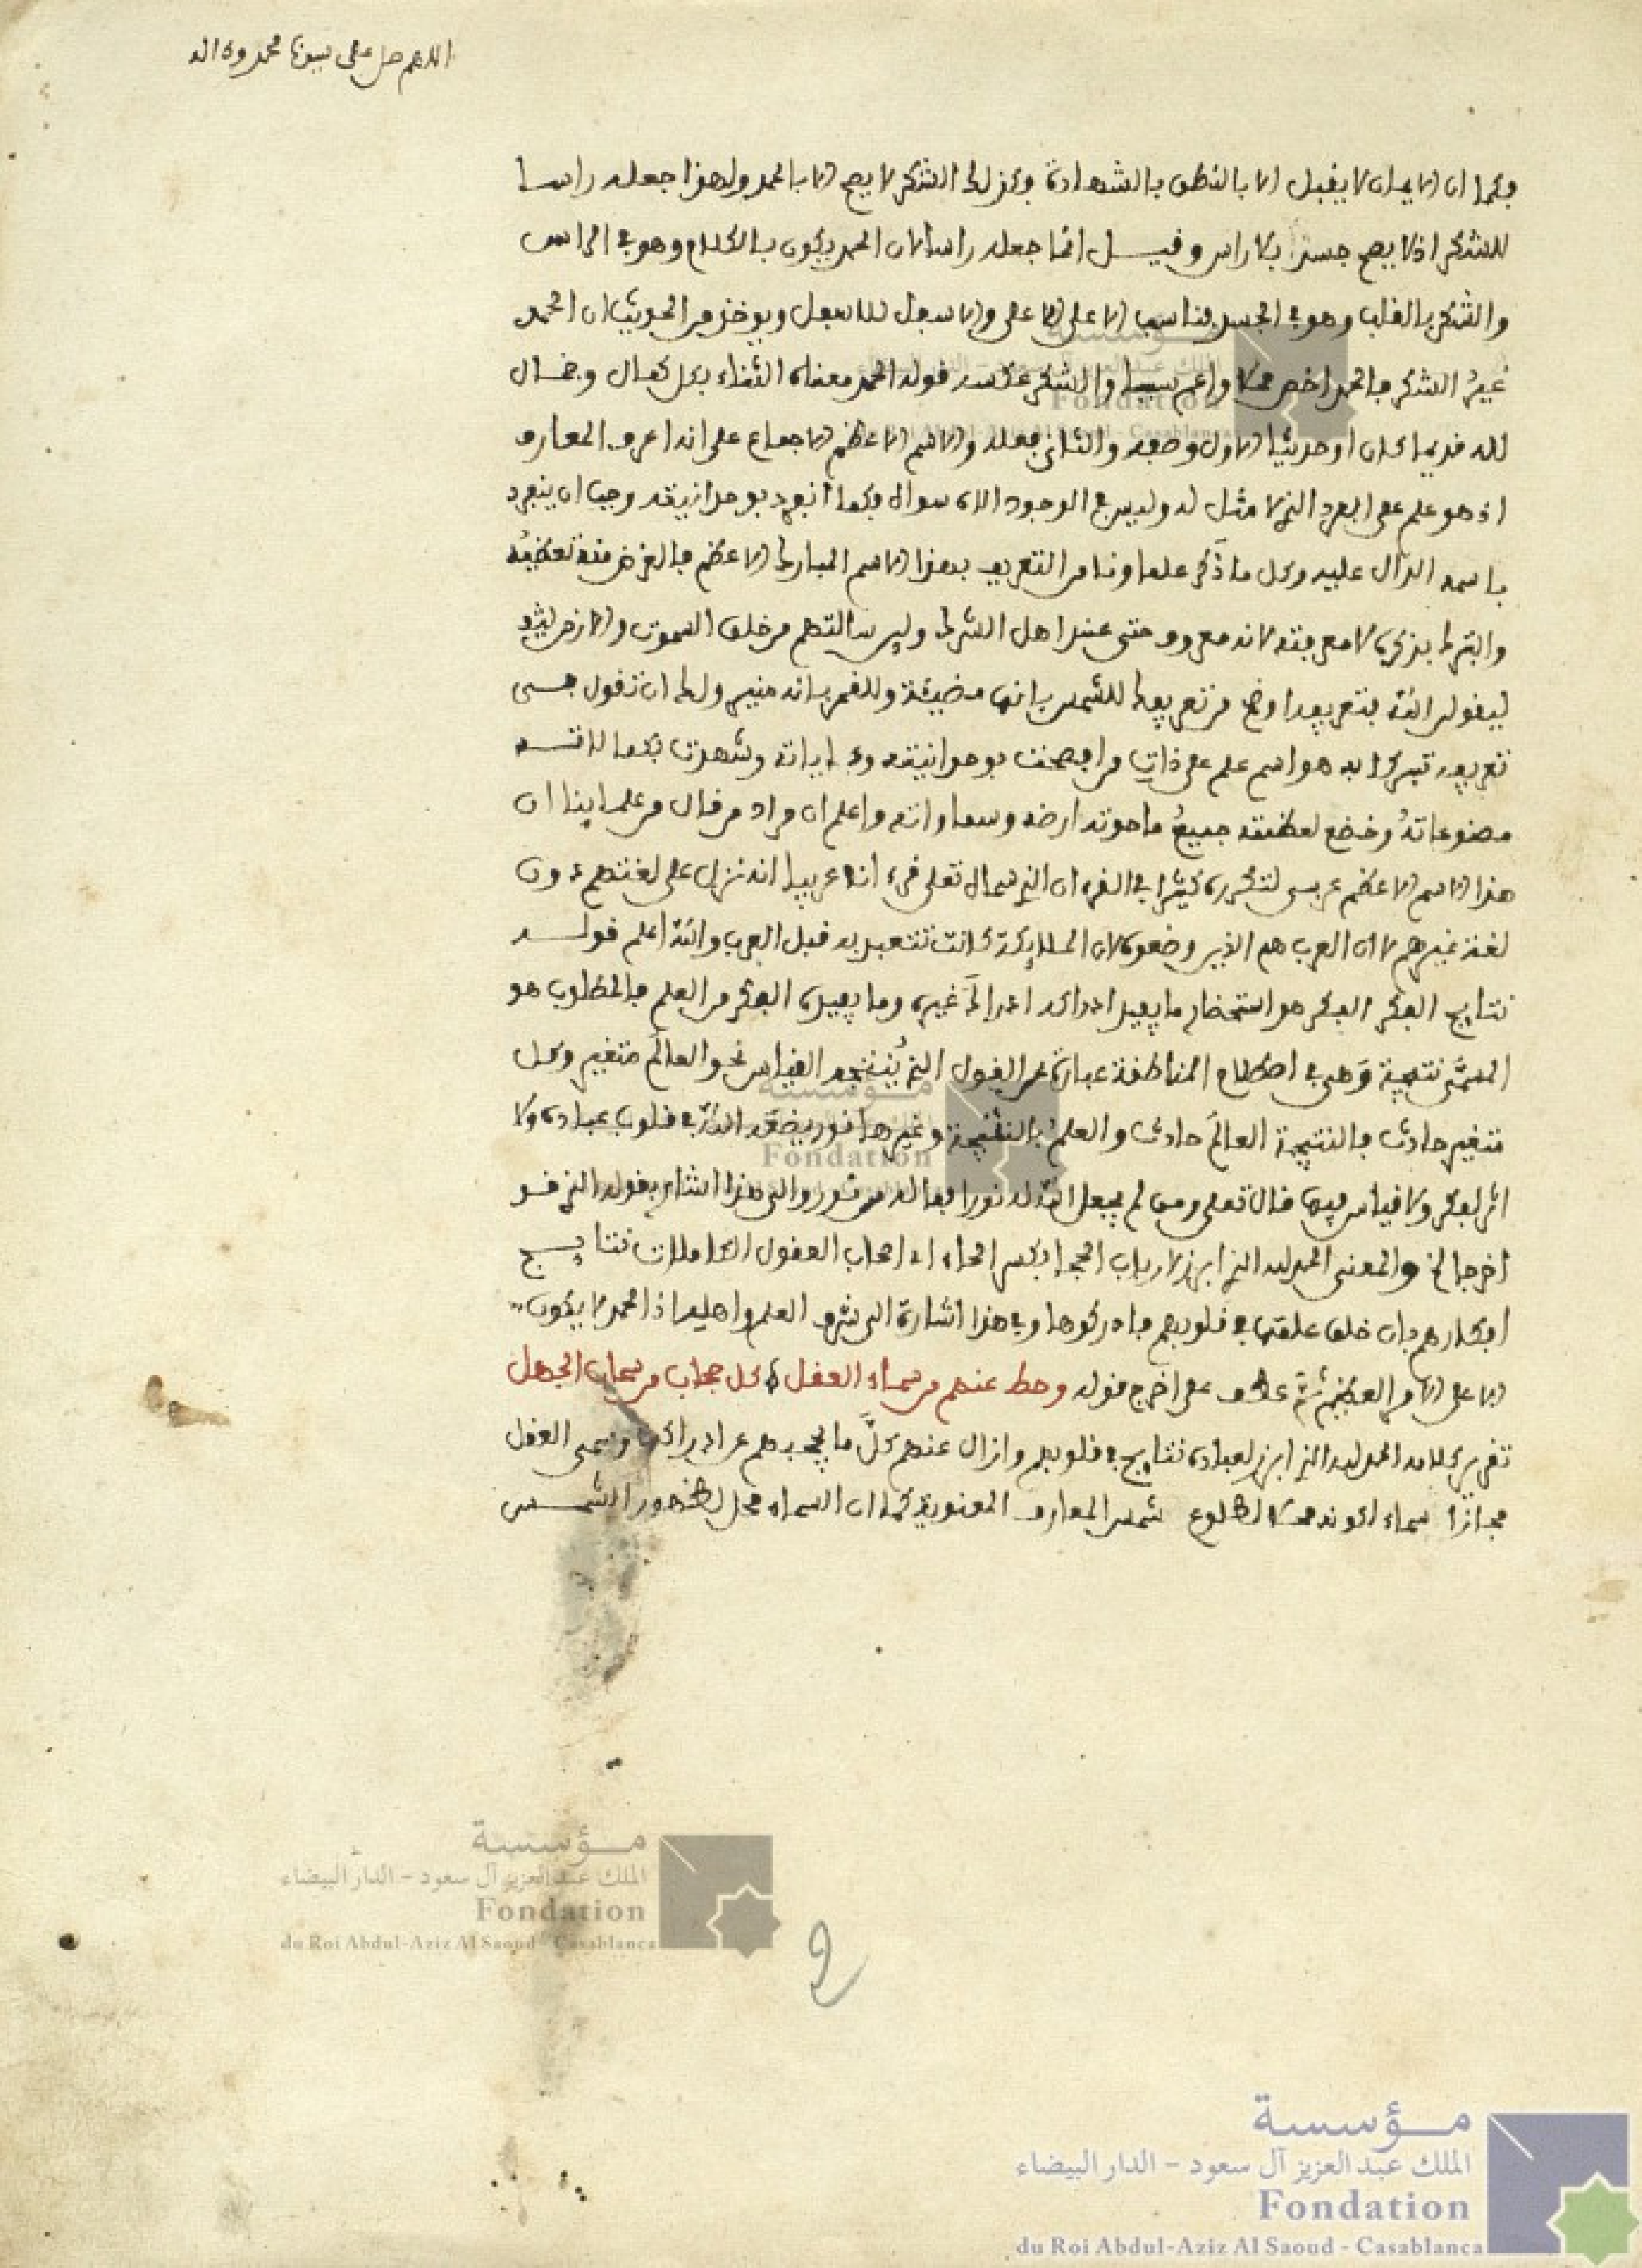 اللهم صل على سيدنا محمد وءاله
فكما ان الايمان لا يقبل الا بالنطق بالشهادة وكذلك الشكر لا يصح الا بالحمد ولهذا جعله راسا
للشكر اذ لا يصح جسد بلا راس وقيل انما جعله راسا لان الحمد يكون بالكلام وهو في الراس
والشكر بالقلب وهو في الجسد فناسب الاعلى للاعلى والاسفل للاسفل ويوخذ من الحديث ان الحمد
غيرُ الشكر فالحمد اخص محلا واعم سببا والشكر عكسه قوله الحمد معناه الثناء بكل كمال وجمال
لله قديما كان او حديثا الاول وصفه والثاني فعله والاسم الاعظم الاجماع على انه اعرف المعارف
اذ هو علم على الفرد الذي لا مثل له وليس في الوجود الاه سواه فكما انفرد بوحدانيته وجب ان ينفرد
باسمه الدال عليه وكل ما ذُكر علماونا من التعريف بهذا الاسم المبارك الاعظم فالغرض منه تعظيمُه
والتبرك بذكره لا معرفته لانه معروف حتى عند اهل الشرك ولين سالتهم من خلق السموت والارض
ليقولن الله فتعريفه اوضح من تعريفك للشمس بانها مضيئة وللقمر بانه منير ولك ان تقول في
تعريفه تبركا به هو اسم علم على ذاتٍ من افصحت بوحدانيته وءاياته وشهدت بكمالاته
مصنوعاتُه وخضع لعظمته جميعُ ما حوته ارضه وسماواته واعلم ان مراد من قال من علماينا ان
هذا الاسم الاعظم عربي لتكرره كثيرا في القرءان الذي سماه تعلى قرءانا عربيا انه نزل على لغتهم دون
لغة غيرهم لا ان العرب هم الذين وضعوه لان الملايكة كانت تتعبد به قبل العرب والله اعلم قوله
نتايج الفكر الفكر هو استحضار ما يفيد ادراكه ادراكَ غيره وما يفيده الفكر من العلم فالمطلوب هو
المسمَّى نتيجة وهي في اصطلاح المناطقة عبارة عن القول الذي يُنتجه القياس نحو العالَم متغير وكل
متغير حادث فالنتيجة العالَم حادث والعلمُ بالنتيجة وغيرها نور يضعه الله في قلوب عباده ولا
اثر لفكر ولا قياس فيها قال تعلى ومن لم يجعل الله له نورا فما له من نور والى هذا اشار بقوله الذي قد
اخرجا الخ والمعنى الحمد لله الذي ابرز لارباب الحجا بكسر الحاء اي اصحاب العقول الكاملات نتايج
افكارهم بان خلق علمها في قلوبهم فادركوها وفي هذا اشارة الى شرف العلم واهليه اذ الحمد لا يكون
الا على الامر العظيم ثم عطف على اخرج قوله وحط عنهم من سماء العقل كل حجاب من سحاب الجهل
تقرير كلامه الحمد لله الذي ابرز لعباده نتايج في قلوبهم وازال عنهم كلَّ ما يحجبهم عن ادراكها وسمى العقل
مجازا سماء لكونه محلا لطلوع شمس المعارف المعنوية كما ان السماء محل لظهور الشمس
2
مؤسسة
الملك عبد العزيز آل سعود - الدار البيضاء
Fondation
du Roi Abdul-Aziz Al Saoud - Casablanca
مؤسسة
الملك عبد العزيز آل سعود - الدار البيضاء
Fondation
du Roi Abdul-Aziz Al Saoud - Casablanca